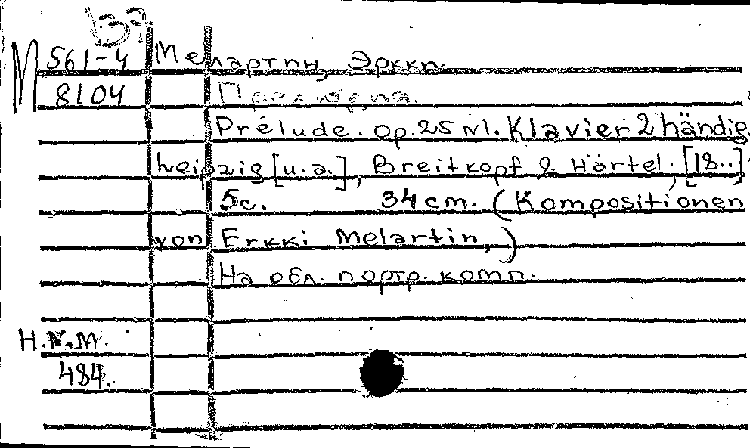 137
М 561-4 Мелартин, Эркки.
8104 Прелюдия.
Prélude. op.25 N1. Klavier 2 händig
Leipzig [u.a.], Breitkopf & Härtel, [18..]
5с. 34 cm. (Kompositionen
von Erkki Melartin,)
На обл. портр. комп.
Н.К.М.
484.